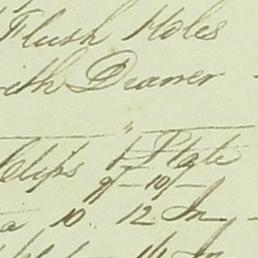 Flush Holes
with Drawer
"
Clips & Plate
9/- 10/-
a 10 12 In
14 In